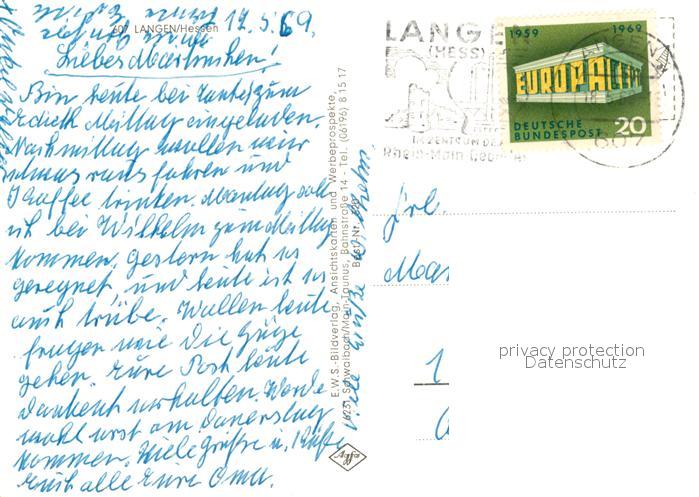 17.5.69.
607 LANGEN/Hessen
Liebes Martinchen!
Bin heute bei Tante zum
Mittag eingeladen.
Nachmittag wollen wir
raus fahren und
Kaffee trinken. Montag soll
ich bei Wilhelm zum Mittag
kommen. Gestern hat es
geregnet und heute ist es
auch trübe. Wollen heute
fragen wie die Züge
gehen. Eure Post heute
dankend erhalten. Werde
wohl erst am Donnerstag
kommen. Viele Grüße u. Küße
Euch alle Eure Oma.
viele Grüße
E.W.S.-Bildverlag, Ansichtskarten und Werbeprospekte,
6231 Schwalbach/Main-Taunus, Bahnstraße 14 - Tel. (06196) 8 15 17
Best.-Nr.
LANGEN
(HESS)
IM ZENTRUM DES
Rhein-Main Gebietes
1959 1969
EUROPA CEPT
DEUTSCHE
BUNDESPOST 20
LANGEN
607
Frl.
Mar
1
privacy protection
Datenschutz